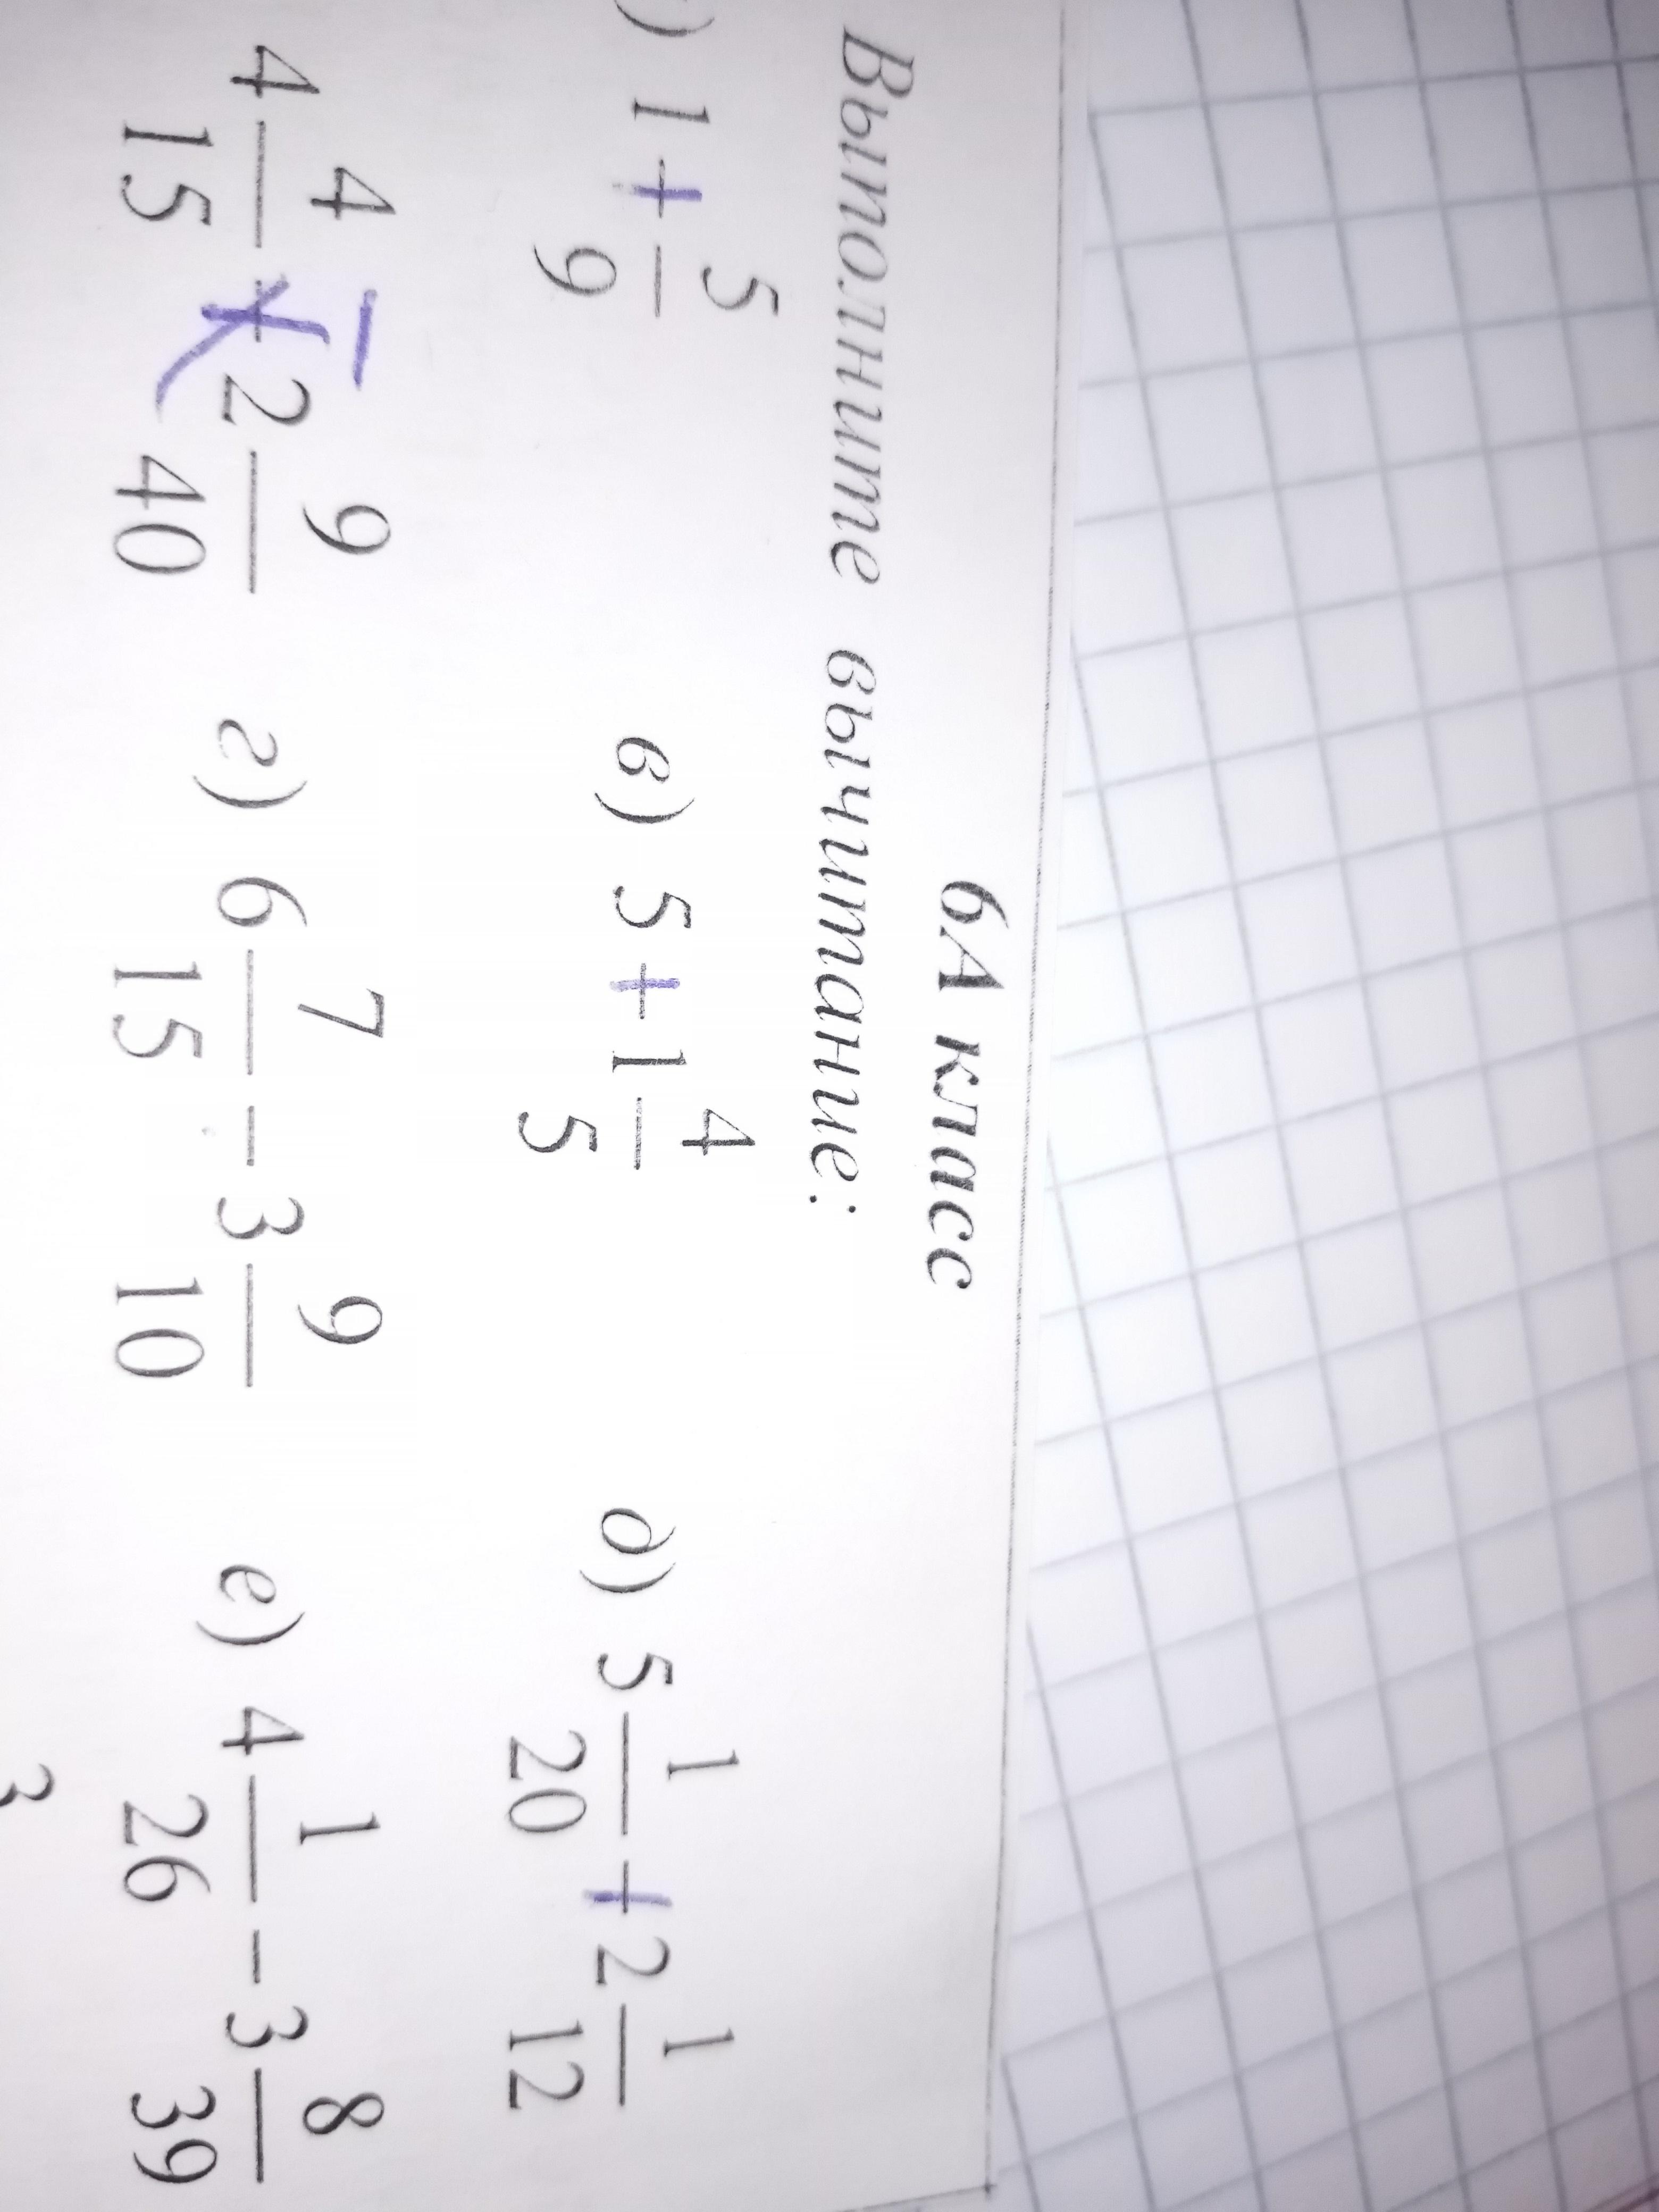 6А класс
Выполните вычитание:
) 1 + 5/9 в) 5 + 1 4/5 д) 5 1/20 + 2 1/12
4 4/15 - 2 9/40 г) 6 7/15 - 3 9/10 е) 4 1/26 - 3 8/39
3